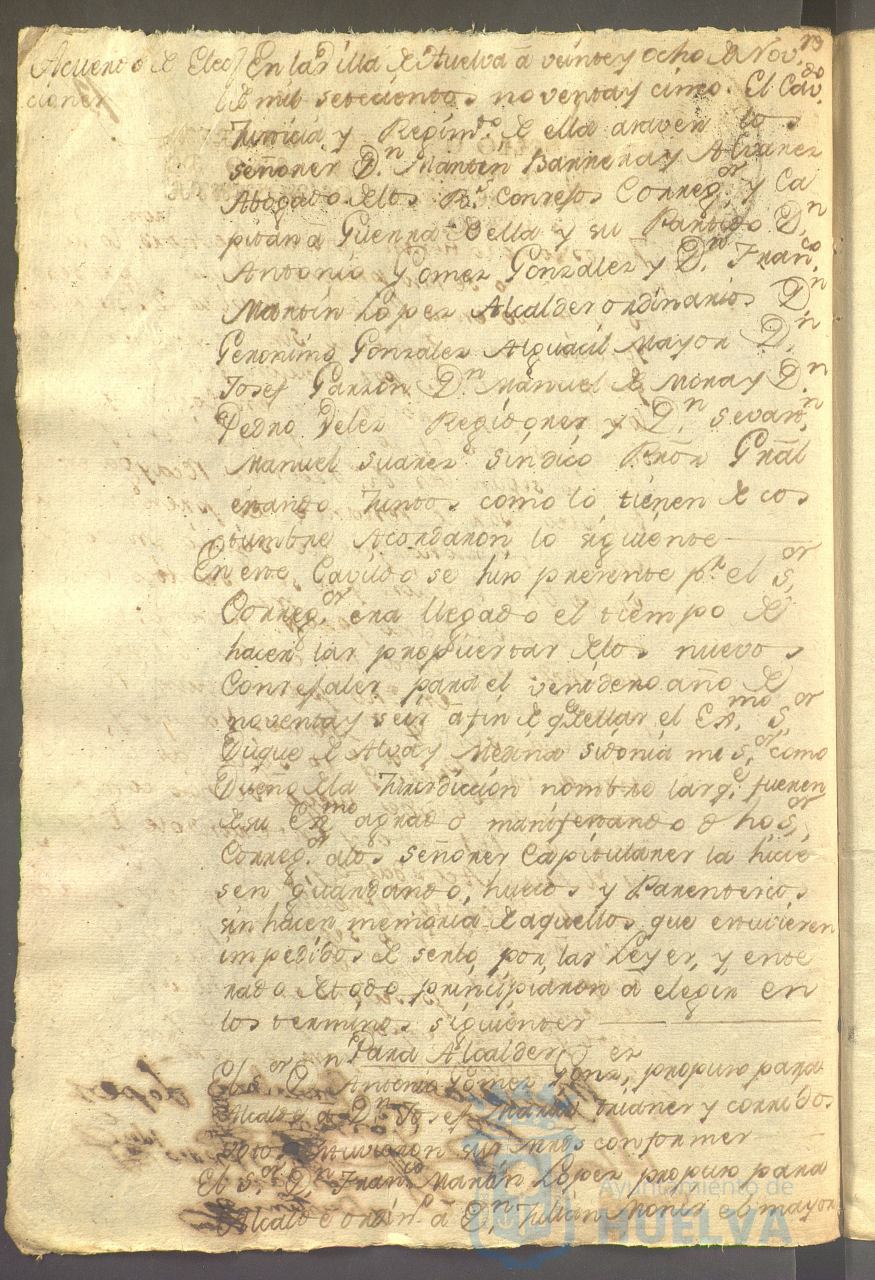 Acuerdo de Elec
ciones
En la Villa de Huelva à veinte y ocho de Nov.
de mil setecientos noventa y cinco. El Cav.do
Justicia y Regim.to de ella asaver los
señores D.n Martin Barrera y Alvarez
Abogado de los R.s Consejos Correg.or y Ca
pitan à Guerra de ella y su Partido D.n
Antonio Gomez Gonzalez y D.n Fran.co
Martin Lopez Alcaldes ordinarios D.n
Geronimo Gonzalez Alguacil Mayor D.n
Josef Garzon D.n Manuel de Mora y D.n
Pedro Velez Regidores y D.n Sevas.n
Manuel Suarez Sindico Grãl
estando Juntos como lo tienen de cos
tumbre Acordaron lo siguiente
En este Cavildo se hizo presente p.r el S.or
Correg.or era llegado el tiempo de
hacer las propuestas de los nuevos
Consejales para el venidero año de
noventa y seis à fin de q.e de ellas el Ex.mo S.or
Duque de Alva y Medina Sidonia mi S.or como
Dueño de la Jurisdiccion nombre los q.e fuesen
de su Ex.mo agrado manifestando dho S.or
Correg.or alos señores Capitulares la hicie
sen guardando, huecos y Parentescos
sin hacer memoria de aquellos que estuviesen
impedidos de serlo por las Leyes, y ente
rado de todo principiaron à elegir en
los terminos siguientes
Para Alcaldes
El S.or D.n Antonio Gomez Gonz.er propuso para
Alcalde a D.n Josef Martin trianes y corridos
votos estuvieron sus mrds conformes
El S.or D.n Fran.co Martin Lopez propuso para
Alcalde ordin.o à D.n Julian Mones el mayor
Ayuntamiento de
HUELVA